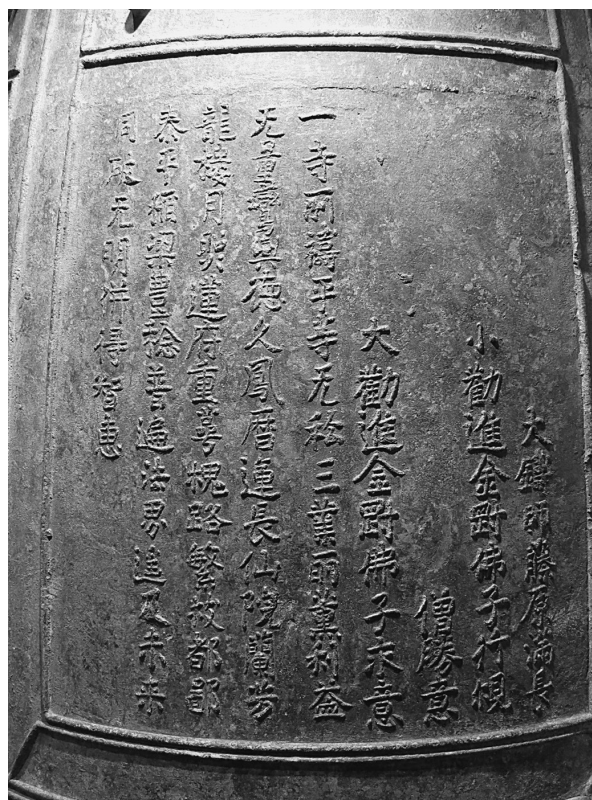 大鑄師藤原満長
小勸進金剛佛子行
僧勝意
大勸進金剛佛子末意
一寺所禱平等无 三業所薫利益
无量壽與德久鳳暦運長仙院蘭芳
龍樓月照蓮府重萼槐路繁枝都鄙
泰平稲粱豊稔普遍法界進及未来
同 无明併得智恵